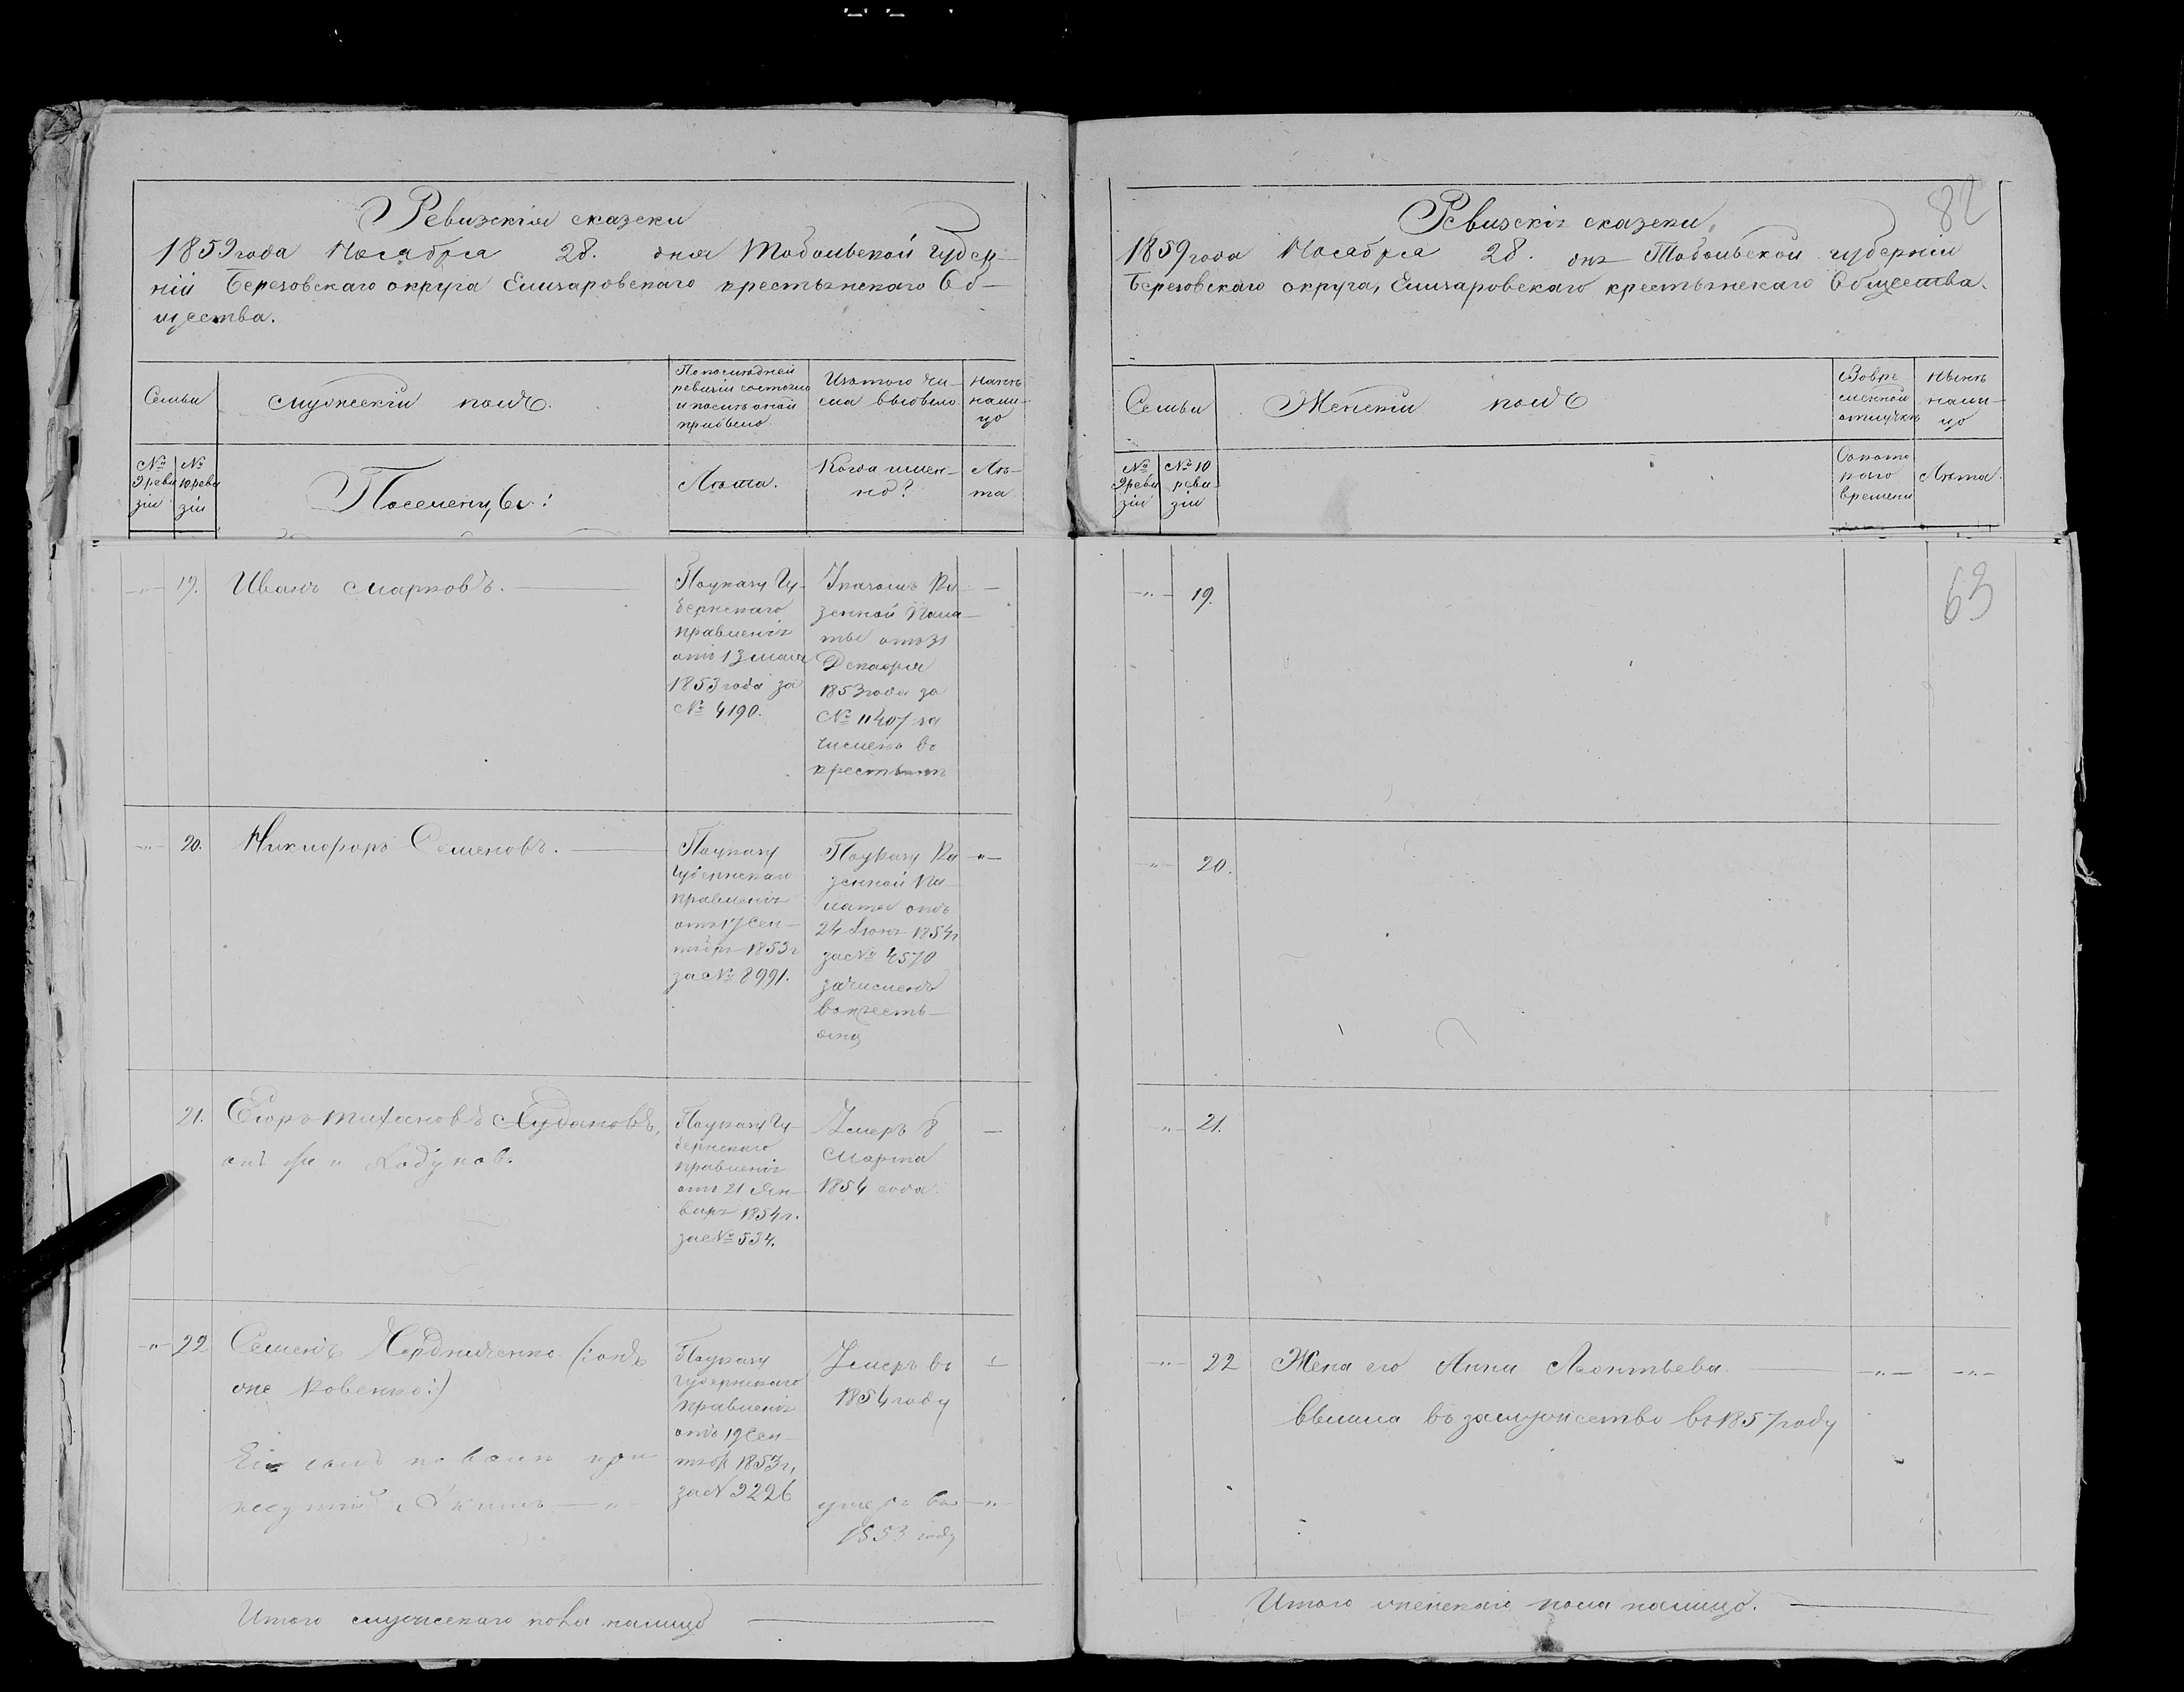 Ревизскія сказки
1859 года Ноября 28. дня Тобольской губер-
ніи Березовскаго округа Елизаровскаго крестьянскаго Об-
щества.
Семьи
Мужескій полъ.
По последней
ревизіи состояло
и после оной
прибыло
Изъ того чи-
сла выбыло
Ныне
нали-
цо
№ 9 реви зіи
№ 10 реви зіи
Поселенцы:
Лета.
Когда имен-
но?
Ле-
та
19. Иванъ Марковъ.
По указу Гу-
бернскаго
правленія
отъ 13 мая
1853 года за
№ 4190.
Указомъ Ка
зенной Пала-
ты отъ 31
Декабря
1853 года за
№ 11407 за
численъ въ
20. Никифоръ Семеновъ.
По указу
Губернскаго
правленія
отъ 17 Сен-
тября 1853 г
за № 8991.
По указу Ка
зенной Па-
латы отъ
24 Іюня 1854 г
за № 4570
зачисленъ
въ кресть-
яна
21.
По указу Гу-
бернскаго
правленія
отъ 21 Ян-
варя 1854 г.
за № 534.
Умеръ 8
Марта
1854 года.
22 Семенъ (:онъ
же Ковенко:)
По указу
Губернскаго
правленія
отъ 19 Сен-
тяб 1853 г,
за № 9226
Умеръ въ
1854 году
умеръ въ
1853 году
Итого мужескаго пола налицо
82
Ревизскія сказки,
1859 года Ноября 28. дня Тобольской губерніи
Березовскаго округа, Елизаровскаго крестьянскаго Общества.
Семьи
Женскій полъ
Во вре
менной
отлучке
Ныне
нали-
цо
№ 9 реви зіи
№ 10 реви зіи
Съ кото
раго
времени
Лета.
19.
63
20.
21.
22 Жена его Анна Леонтьева
вышла въ замужство въ 1857 году
Итого женскаго пола налицо.